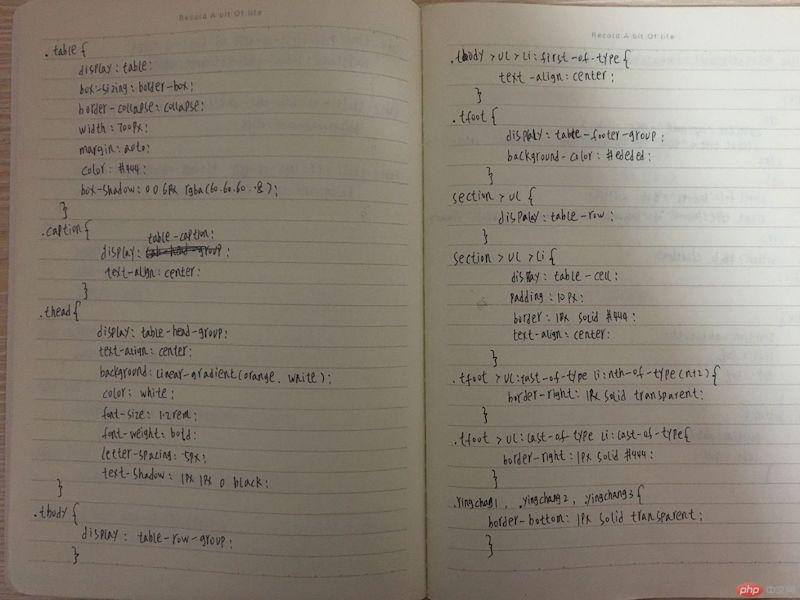 Record A bit Of life
.table {
display: table;
box-sizing: border-box;
border-collapse: collapse;
width: 700px;
margin: auto;
color: #444;
box-shadow: 0 0 6px rgba(60.60.60 .8);
}
.caption {
table-caption;
display: :
text-align: center;
}
.thead {
display: table-head-group;
text-align: center;
background: linear-gradient(orange, white);
color: white;
font-size: 1.2rem;
font-weight: bold;
letter-spacing: 5px;
text-shadow: 1px 1px 0 black;
}
.tbody {
display: table-row-group;
}
Record A bit Of life
.tbody > ul > li:first-of-type {
text-align: center;
}
.tfoot {
display: table-footer-group;
background-color: #ededed;
}
section > ul {
display: table-row;
}
section > ul > li {
display: table-cell;
padding: 10px;
border: 1px solid #444;
text-align: center;
}
.tfoot > ul:last-of-type li:nth-of-type(n+2) {
border-right: 1px solid transparent;
}
.tfoot > ul:last-of-type li:last-of-type {
border-right: 1px solid #444;
}
.yingchang1, .yingchang2, .yingchang3 {
border-bottom: 1px solid transparent;
}
php 中文网